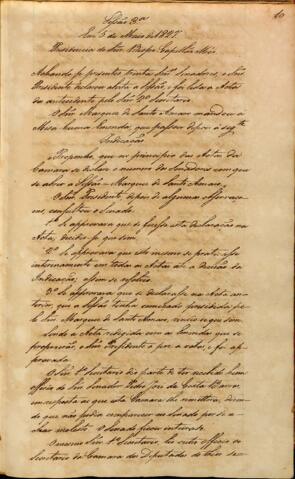 10
Sessão 3.ª
Em 5 de Maio de 1827
Presidencia do Snr. Bispo Capellão Mór
Achando-se presentes trinta Snrs. Senadores, o Snr.
Presidente declarou aberta a Sessão, e foi lida a Acta
da antecedente pelo Snr. 2.º Secretario
O Snr. Marquez de Santo Amaro mandou á
Mesa huma Emenda, que passou depois á seg.te
Indicação
Proponho, que no principio das Actas da
Camara se declare o numero dos Senadores com que
se abrio a Sessão = Marquez de Santo Amaro.
O Snr. Presidente, depois de algumas observaço-
ens, consultou o Senado.
1.º Se approvava que se fizesse esta declaração na
Acta, decidio-se que sim.
2.º Se approvava que o mesmo se praticasse
internamente em todas as Actas até a decisão da
Indicação, assim se resolveo.
3.º Se approvava que se declarasse na Acta an-
terior, que a Sessão tinha começado presidida pe-
lo Snr. Marquez de Santo Amaro, venceo-se que sim.
Sendo a Acta redigida com as Emendas que se
propuserão, o Snr. Presidente a poz a votos, e foi ap-
provada.
O Snr. 1.º Secretario deo parte de ter recebido hum
officio do Snr. Senador Pedro José da Costa Barros
em resposta ao que esta Camara lhe remettera, dizen-
do que não podia comparecer no Senado por se a-
char molesto. O Senado ficou inteirado.
O mesmo Snr. 1.º Secretario, leo outro officio do
Secretario da Camara dos Deputados de tres do